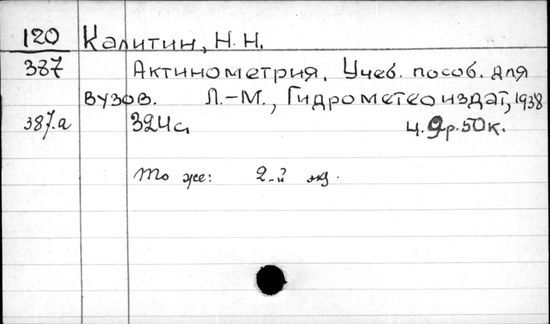 120 Калитин, Н. Н.
387 Актинометрия. Учеб. пособ. для
вузов. Л.-М., Гидрометеоиздат, 1938
387.а 324с. ц. 9р.50к.
То же: 2-й экз.